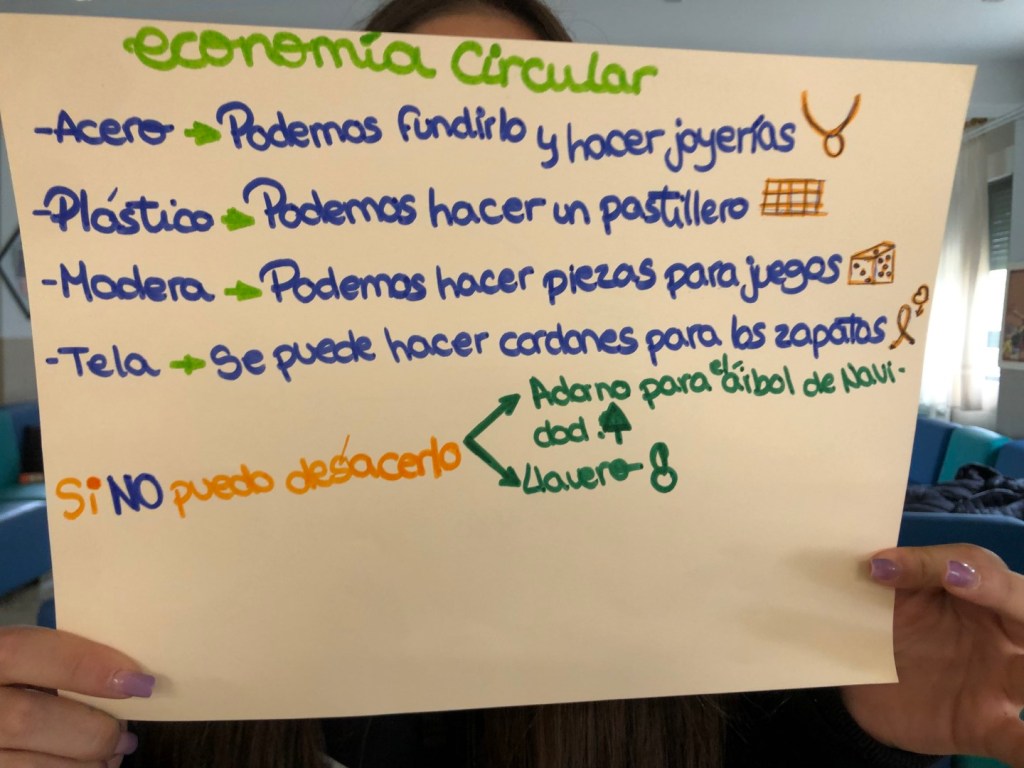 economía Circular
-Acero → Podemos fundirlo y hacer joyerías
-Plástico → Podemos hacer un pastillero
-Madera → Podemos hacer piezas para juegos
-Tela → Se puede hacer cordones para los zapatos
Adorno para el árbol de Navi-
dad.
Si NO puedo desácerlo
Llavero